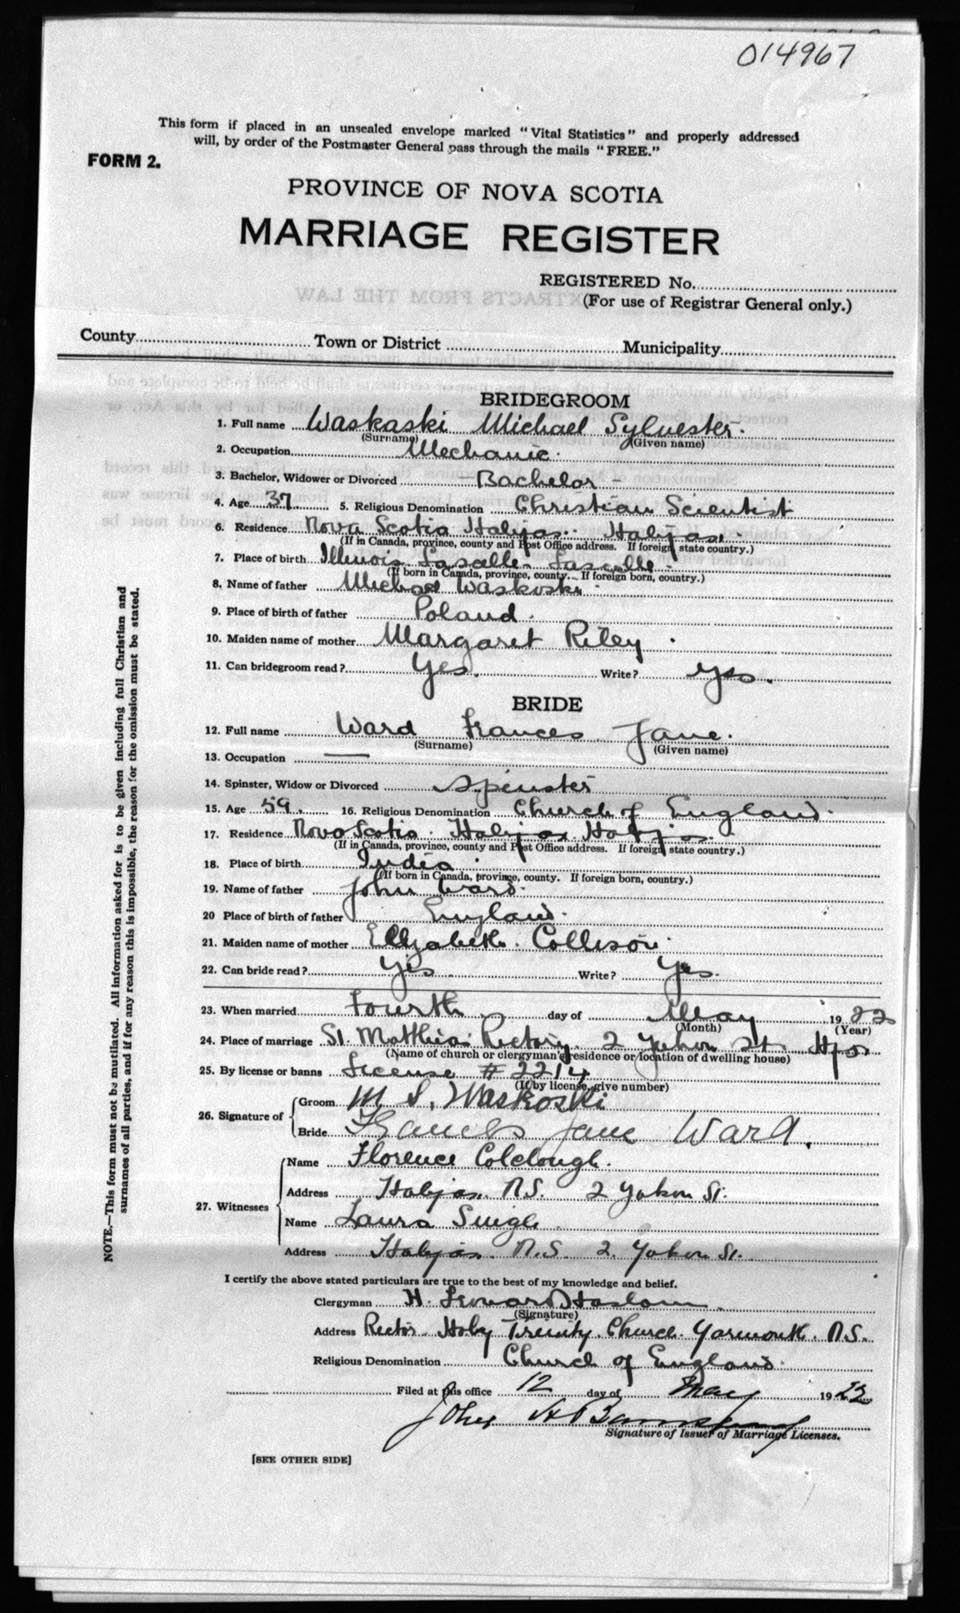 014967
This form if placed in an unsealed envelope marked "Vital Statistics" and properly addressed
will, by order of the Postmaster General pass through the mails "FREE."
FORM 2.
PROVINCE OF NOVA SCOTIA
MARRIAGE REGISTER
REGISTERED No.
(For use of Registrar General only.)
County Town or District Municipality
BRIDEGROOM
1. Full name Waskaski Michael Sylvester.
(Surname) (Given name)
2. Occupation Mechanic.
3. Bachelor, Widower or Divorced Bachelor
4. Age 37 5. Religious Denomination Christian Scientist
6. Residence Nova Scotia Halifax. Halifax.
(If in Canada, province, county and Post Office address. If foreign state country.)
7. Place of birth Illinois. Lasalle. Lasalle.
(If born in Canada, province, county. If foreign born, country.)
8. Name of father Michael Waskoski
9. Place of birth of father Poland.
10. Maiden name of mother Margaret Riley.
11. Can bridegroom read? Yes. Write? Yes.
BRIDE
12. Full name Ward Frances Jane.
(Surname) (Given name)
13. Occupation —
14. Spinster, Widow or Divorced Spinster
15. Age 59. 16. Religious Denomination Church of England.
17. Residence Nova Scotia. Halifax. Halifax.
(If in Canada, province, county and Post Office address. If foreign state country.)
18. Place of birth India.
(If born in Canada, province, county. If foreign born, country.)
19. Name of father John Ward.
20 Place of birth of father England.
21. Maiden name of mother Elizabeth. Collison.
22. Can bride read? Yes Write? Yes.
23. When married Fourth day of May 1922
(Month) (Year)
24. Place of marriage St. Matthias Rectory. 2 Yukon St. Hfx
(Name of church or clergyman's residence or location of dwelling house)
25. By license or banns License # 2214
(If by license, give number)
26. Signature of Groom M S. Waskoski
Bride Frances Jane Ward.
27. Witnesses
Name Florence Colclough.
Address Halifax. N.S. 2 Yukon St.
Name Laura
Address Halifax. N.S. 2. Yukon St.
I certify the above stated particulars are true to the best of my knowledge and belief.
Clergyman H. Leonard Haslam
(Signature)
Address Rector. Holy Trinity. Church. Yarmouth. N.S.
Religious Denomination Church of England.
Filed at this office 12 day of May 1922
John
Signature of Issuer of Marriage Licenses.
[SEE OTHER SIDE]
NOTE.—This form must not be mutilated. All information asked for is to be given including full Christian and
surnames of all parties, and if for any reason this is impossible, the reason for the omission must be stated.